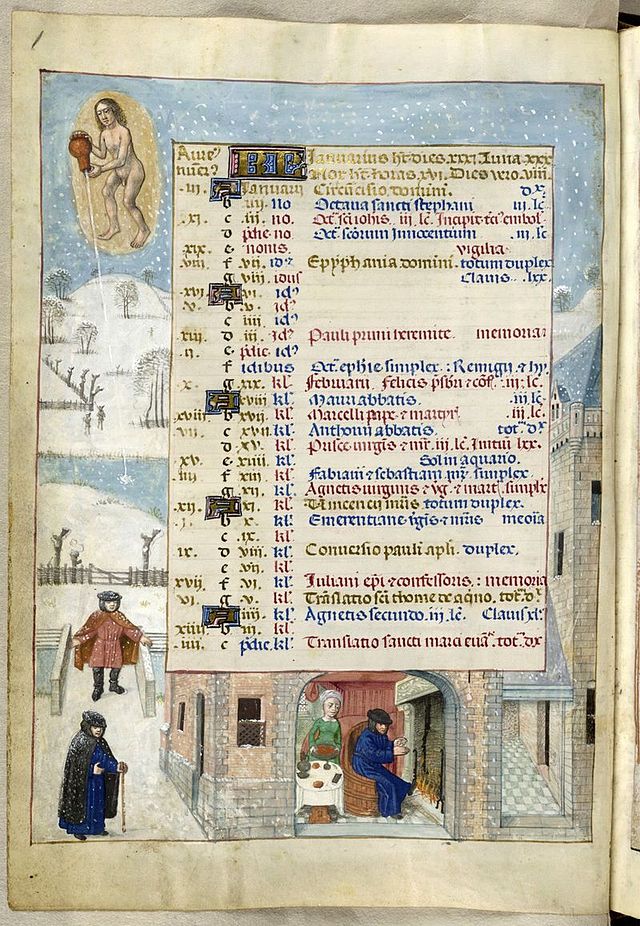 1
Aure⁹ Januarius ht dies xxxi. Luna xxx
nu⁹ci⁹ Nox ht horas xvi. Dies vero viii.
iii. A Januarii Circūcisio domini. dx
b iiii no Octava sancti stephani iii. lc.
xi. c iii no. Oct. sci iohis. iii. lc. Incipit
d pdie no Oct. scorum Innocentium iii. lc
xix. e nonis. vigilia
viii. f viii id⁹ Epyphania domini. totum duplex
g vii idus Clavis. lxx.
xvi A vi. id⁹
v. b v. id⁹
c iiii id⁹
xiii d iii. id⁹ Pauli primi heremite. memoria
ii. e pdie id⁹
f idibus Oct. ephie simplex. Remigii & hy.
x. g xix. kl. februarii. Felicis pbri & cōf. iii. lc.
A xviii kl. Mauri abbatis. iii. lc.
xviii b xvii kl. Marcelli pape & martyr iii. lc.
vii c xvi. kl. Anthonii abbatis. tot. dx
d xv. kl. Prisce virgīs & mr. iii. lc. Initiū lxx.
xv. e xiiii. kl. Sol in aquario.
iiii f xiii. kl. Fabiani & sebastiani mr. simplex
g xii. kl. Agnetis virginis & mart. simplex
xii A xi. kl. Vincencii mris totum duplex.
i. b x. kl. Emerentiane vgis & mris memoīa
c ix. kl.
ix. d viii. kl. Conversio pauli apli. duplex.
e vii. kl.
xvii f vi. kl. Juliani epi & confessoris. memoria
vi. g v. kl. Translatio sci thome de aqno. tot. dx
A iiii. kl. Agnetis secundo. iii. lc. Clavis xl.
xiiii b iii. kl.
iii. c pdie. kl. Translatio sancti marci eva. tot. dx